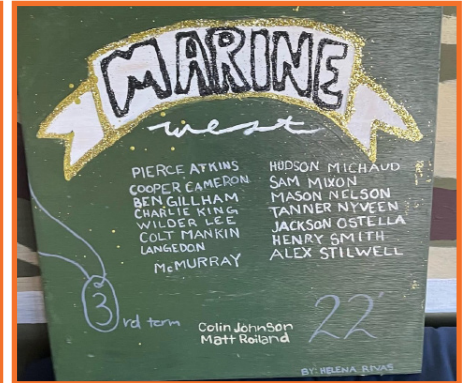 MARINE
west
PIERCE ATKINS
COOPER CAMERON
BEN GILLHAM
CHARLIE KING
WILDER LEE
COLT MANKIN
LANGEDON
McMURRAY
HUDSON MICHAUD
SAM MIXON
MASON NELSON
TANNER NYVEEN
JACKSON OSTELLA
HENRY SMITH
ALEX STILWELL
3rd term
Colin Johnson
Matt Roiland
22'
BY: HELENA RIVAS